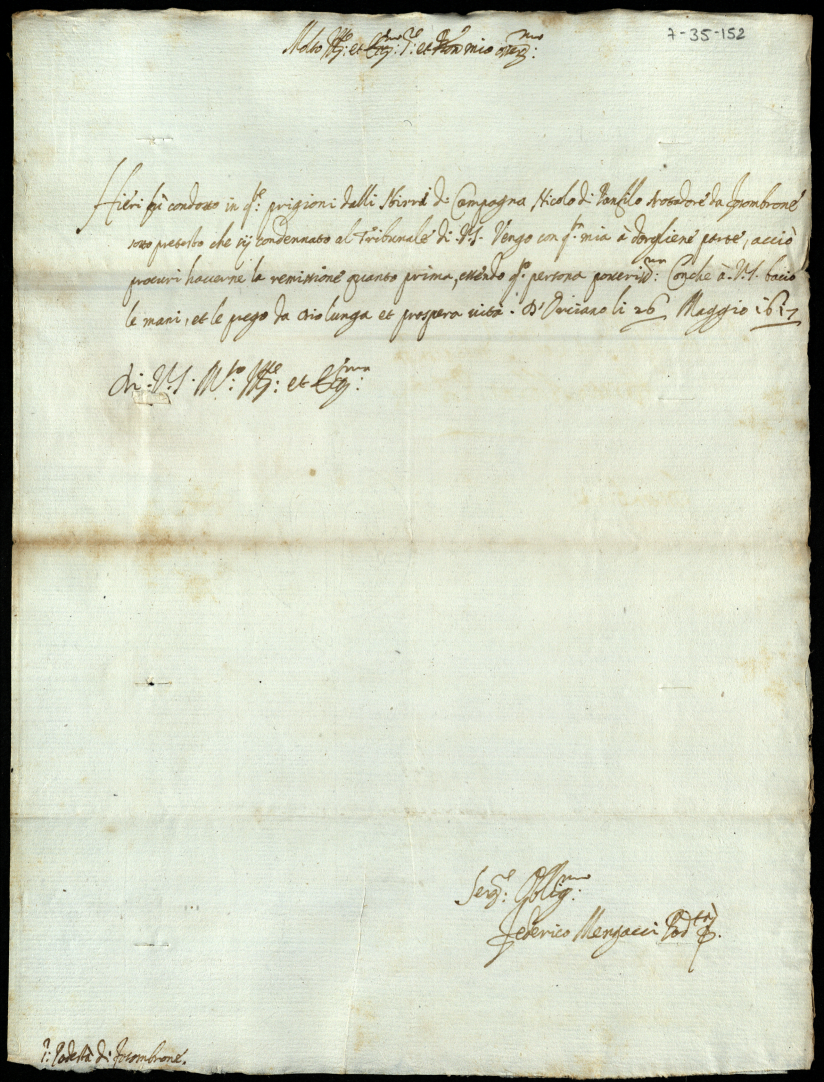 7-35-152
Molto Ill.re et Ecc.mo S.re et P.ron mio oss.mo
Hieri fù condotto in q.te prigioni dalli Sbirri di Campagna Nicolo di da Fosombrone
sotto pretesto che sij condennato al Tribunale di V.S. Vengo con q.ta mia à dargliene parte, acciò
procuri haverne la remissione quanto prima, essendo q.ta persona poveriss.ma: Conche à V.S. bacio
le mani, et le prego da Dio lunga et prospera vita. D'Orciano li 26 Maggio 1617
Di V.S. M.to Ill.re et Ecc.ma
Ser.re Oblig.mo
Federico Pod.tà
S: Podestà di Fosombrone.